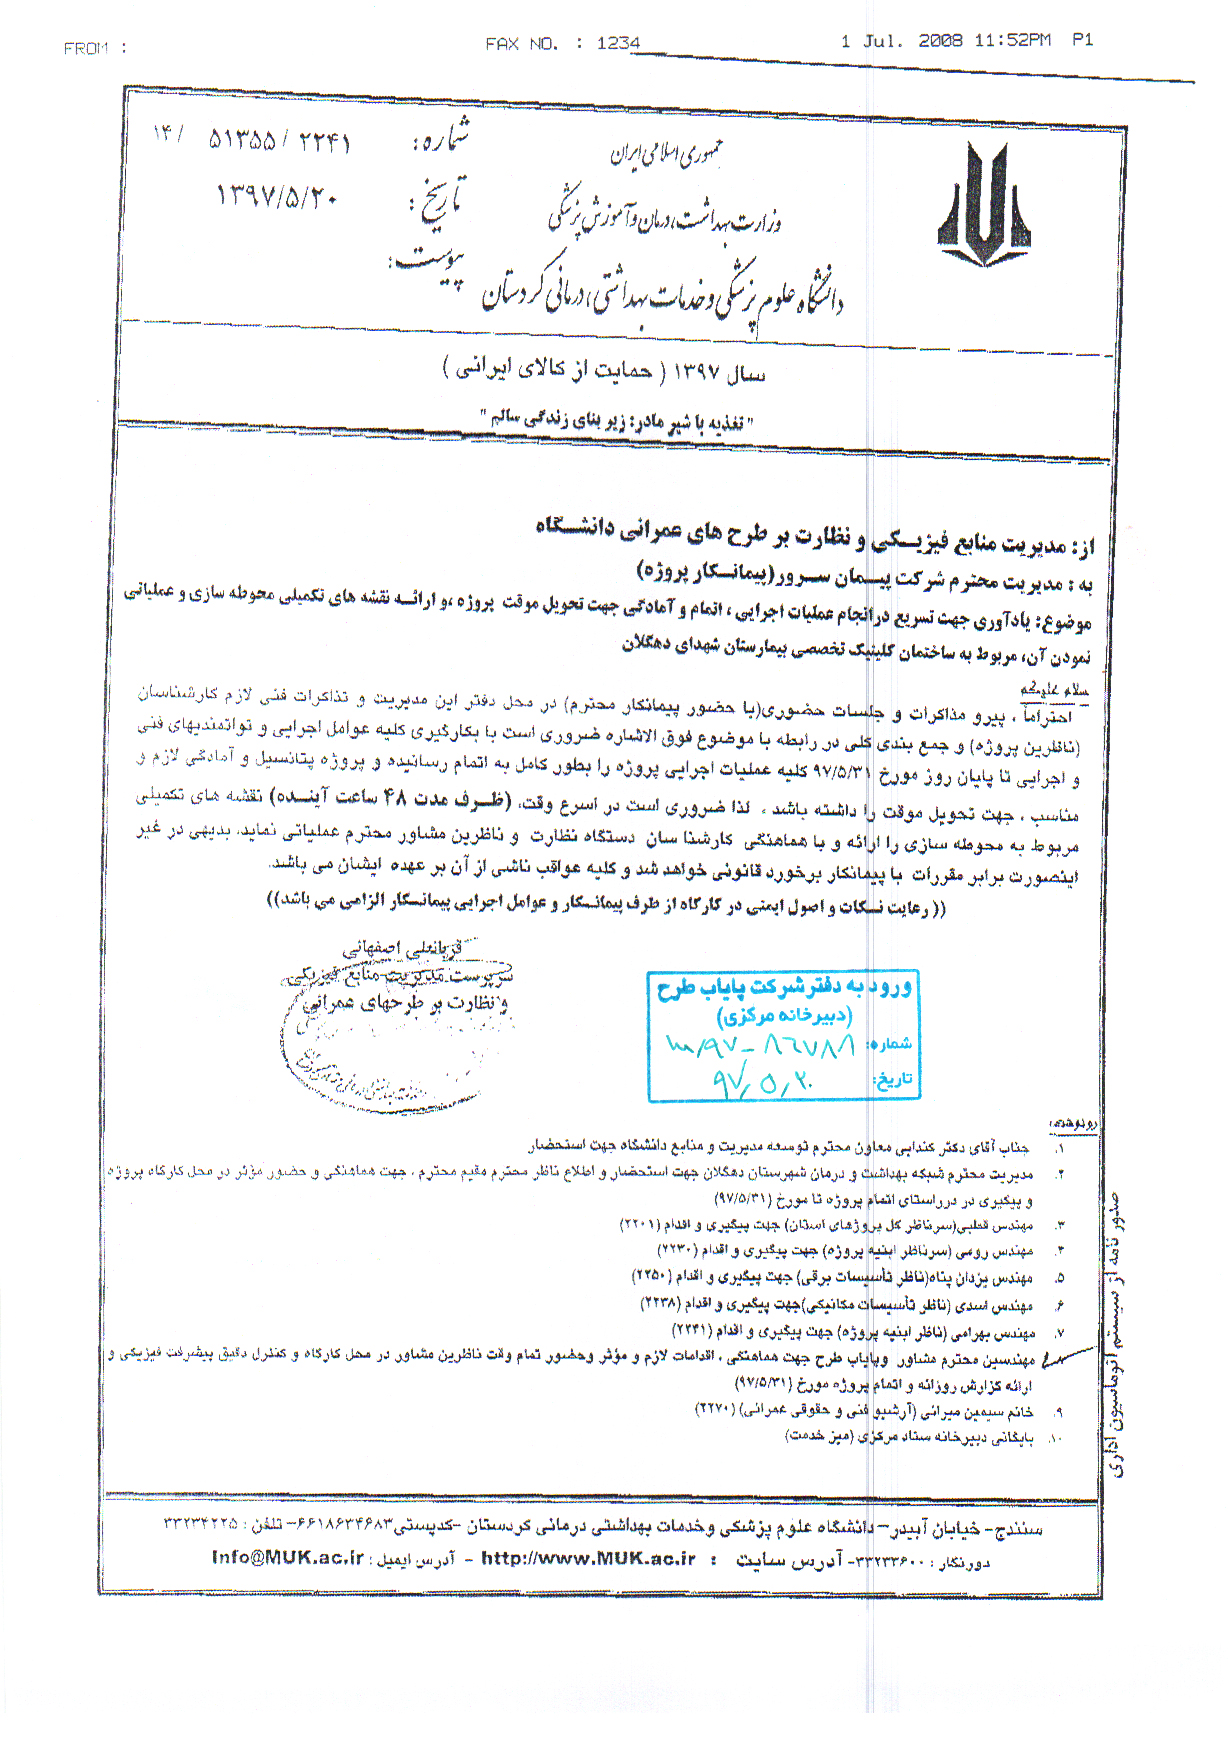 FROM :
FAX NO. : 1234
1 Jul. 2008 11:52PM P1
جمهوری اسلامی ایران
وزارت بهداشت، درمان و آموزش پزشکی
دانشگاه علوم پزشکی و خدمات بهداشتی، درمانی کردستان
شماره: ۱۴/ ۵۱۳۵۵/ ۲۲۴۱
تاریخ: ۱۳۹۷/۵/۲۰
پیوست:
سال ۱۳۹۷ ( حمایت از کالای ایرانی )
" تغذیه با شیر مادر: زیر بنای زندگی سالم "
از: مدیریت منابع فیزیکی و نظارت بر طرح های عمرانی دانشگاه
به : مدیریت محترم شرکت پیمان سرور(پیمانکار پروژه)
موضوع: یادآوری جهت تسریع درانجام عملیات اجرایی ، اتمام و آمادگی جهت تحویل موقت پروژه ،و ارائه نقشه های تکمیلی محوطه سازی و عملیاتی
نمودن آن، مربوط به ساختمان کلینیک تخصصی بیمارستان شهدای دهگلان
سلام علیکم
احتراماً ، پیرو مذاکرات و جلسات حضوری(با حضور پیمانکار محترم) در محل دفتر این مدیریت و تذاکرات فنی لازم کارشناسان
(ناظرین پروژه) و جمع بندی کلی در رابطه با موضوع فوق الاشاره ضروری است با بکارگیری کلیه عوامل اجرایی و توانمندیهای فنی
و اجرایی تا پایان روز مورخ ۹۷/۵/۳۱ کلیه عملیات اجرایی پروژه را بطور کامل به اتمام رسانیده و پروژه پتانسیل و آمادگی لازم و
مناسب ، جهت تحویل موقت را داشته باشد . لذا ضروری است در اسرع وقت، (ظرف مدت ۴۸ ساعت آینده) نقشه های تکمیلی
مربوط به محوطه سازی را ارائه و با هماهنگی کارشنا سان دستگاه نظارت و ناظرین مشاور محترم عملیاتی نماید، بدیهی در غیر
اینصورت برابر مقررات با پیمانکار برخورد قانونی خواهد شد و کلیه عواقب ناشی از آن بر عهده ایشان می باشد.
(( رعایت نکات و اصول ایمنی در کارگاه از طرف پیمانکار و عوامل اجرایی پیمانکار الزامی می باشد))
قربانعلی اصفهانی
سرپرست مدیریت منابع فیزیکی
و نظارت بر طرحهای عمرانی
ورود به دفتر شرکت پایاب طرح
(دبیرخانه مرکزی)
شماره: ۹۷-۸۶۷۸۸
تاریخ: ۹۷/۵/۲۰
رونوشت:
۱. جناب آقای دکتر کندابی معاون محترم توسعه مدیریت و منابع دانشگاه جهت استحضار
۲. مدیریت محترم شبکه بهداشت و درمان شهرستان دهگلان جهت استحضار و اطلاع ناظر محترم مقیم محترم ، جهت هماهنگی و حضور مؤثر در محل کارگاه پروژه
و پیگیری در درراستای اتمام پروژه تا مورخ (۹۷/۵/۳۱)
۳. مهندس قطبی(سرناظر کل پروژهای استان) جهت پیگیری و اقدام (۲۲۰۱)
۴. مهندس روسی (سرناظر ابنیه پروژه) جهت پیگیری و اقدام (۲۲۳۰)
۵. مهندس یزدان پناه(ناظر تأسیسات برقی) جهت پیگیری و اقدام (۲۲۵۰)
۶. مهندس اسدی (ناظر تأسیسات مکانیکی)جهت پیگیری و اقدام (۲۲۳۸)
۷. مهندس بهرامی (ناظر ابنیه پروژه) جهت پیگیری و اقدام (۲۲۴۱)
۸. مهندسین محترم مشاور وپایاب طرح جهت هماهنگی ، اقدامات لازم و مؤثر وحضور تمام وقت ناظرین مشاور در محل کارگاه و کنترل دقیق پیشرفت فیزیکی و
ارائه گزارش روزانه و اتمام پروژه مورخ (۹۷/۵/۳۱)
۹. خانم سیمین میرانی (آرشیو فنی و حقوقی عمرانی) (۲۲۷۰)
۱۰. بایگانی دبیرخانه ستاد مرکزی (میز خدمت)
صدور نامه از سیستم اتوماسیون اداری
سنندج- خیابان آبیدر- دانشگاه علوم پزشکی وخدمات بهداشتی درمانی کردستان -کدپستی۶۶۱۸۶۳۴۶۸۳- تلفن : ۳۳۲۳۴۲۲۵
دورنگار : ۳۳۲۳۳۶۰۰- آدرس سایت : http://www.MUK.ac.ir - آدرس ایمیل : Info@MUK.ac.ir